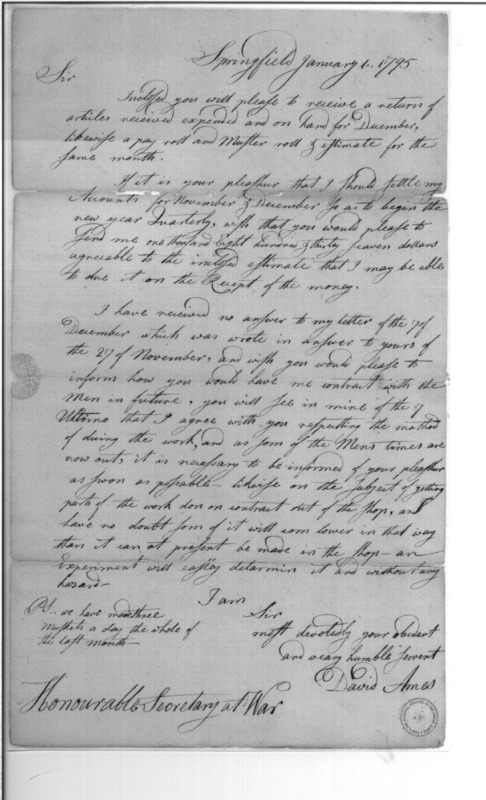 Springfield January 1. 1795
Sir
Inclosed you will please to receive a return of
articles received expended and on hand for December,
likewise a pay roll and Muster roll & estimate for the
same month.
If it is your pleasuer that I should settle my
Accounts for November & December so as to begin the
new year Quarterly, wish that you would please to
send me one thousand Eight hundred & thirty seaven dollars
agreeable to the inclosed estimate that I may be able
to due it on the Receipt of the money.
I have received no answer to my letter of the 7 of
December which was wrote in answer to yours of
the 27 of November, and wish you would please to
inform how you would have me contract with the
Men in future, you will see in mine of the 7
Ultimo that I agree with you respecting the mathod
of duing the work, and as som of the Mens times are
now out, it is necessary to be informed of your pleasuer
as swon as possable— likewise on the subject of getting
parts of the work don on contract out of the shop, as I
have no doubt som of it will com lower in that way
than it can at present be made in the shop— an
Experiment will easley determin it and without any
hazard—
I am
Sir
most devotedly your obident
and veary humble servent
David Ames
PS.. we have made three
muskets a day the whole of
the last month
Honourable Secretary at War